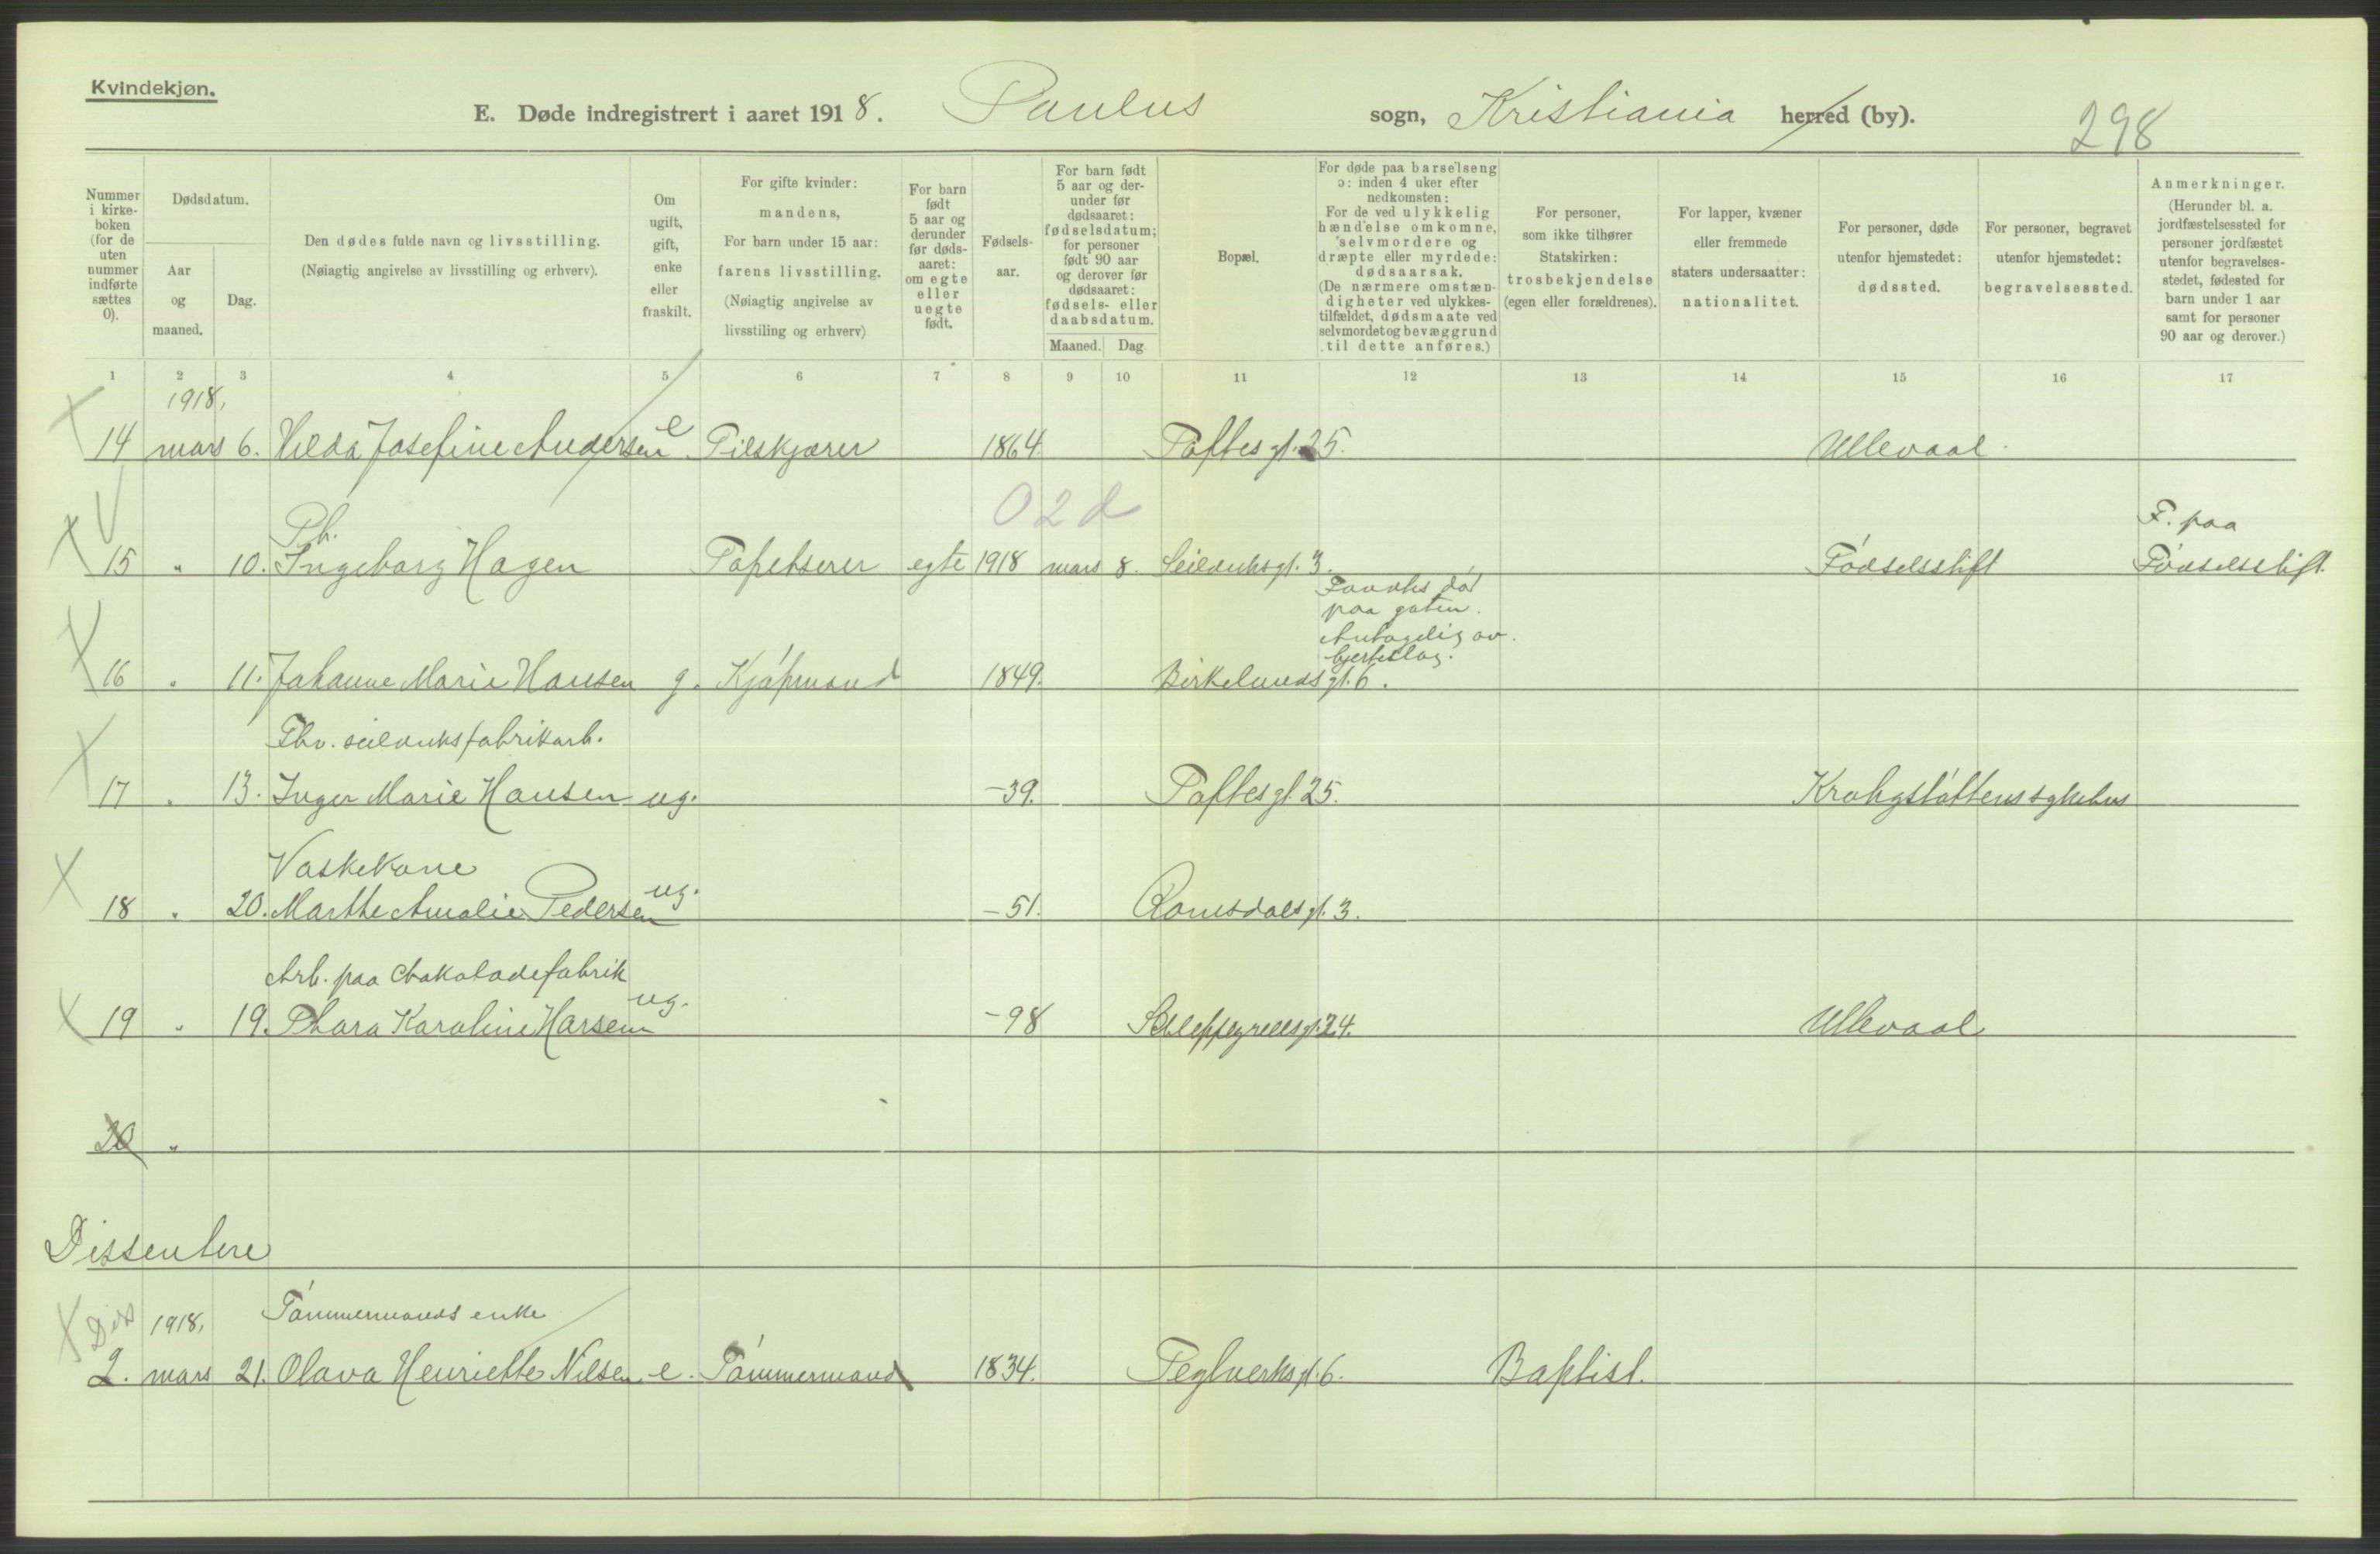 Kvindekjøn.
E. Døde indregistrert i aaret 1918. Paulus sogn, Kristiania herred (by). 298
Nummer i kirkeboken (for de uten nummer indførte sættes 0).
Dødsdatum.
Aar og maaned.
Dag.
Den dødes fulde navn og livsstilling.
(Nøiagtig angivelse av livsstilling og erhverv).
Om ugift, gift, enke eller fraskilt.
For gifte kvinder: mandens,
For barn under 15 aar: farens livsstilling.
(Nøiagtig angivelse av livsstiling og erhverv)
For barn født 5 aar og derunder før dødsaaret: om egte eller uegte født.
Fødselsaar.
For barn født 5 aar og derunder før dødsaaret: fødselsdatum; for personer født 90 aar og derover før dødsaaret: fødsels- eller daabsdatum.
Maaned. Dag.
Bopæl.
For døde paa barselseng ɔ: inden 4 uker efter nedkomsten:
For de ved ulykkelig hændelse omkomne, selvmordere og dræpte eller myrdede: dødsaarsak.
(De nærmere omstændigheter ved ulykkestilfældet, dødsmaate ved selvmordet og bevæggrund til dette anføres.)
For personer, som ikke tilhører Statskirken: trosbekjendelse (egen eller forældrenes).
For lapper, kvæner eller fremmede staters undersaatter: nationalitet.
For personer, døde utenfor hjemstedet: dødssted.
For personer, begravet utenfor hjemstedet: begravelsessted.
Anmerkninger.
(Herunder bl. a. jordfæstelsessted for personer jordfæstet utenfor begravelsesstedet, fødested for barn under 1 aar samt for personer 90 aar og derover.)
1 2 3 4 5 6 7 8 9 10 11 12 13 14 15 16 17
1918.
14 mars 6. Hilda Josefine Andersen e Pilskjærer 1864. Toftes gt. 25. Ullevaal.
02d
F. paa
15 " 10. Ingeborg Hagen Tapetserer egte 1918 mars 8. Seilduksgt. 3. Födselsstift Födselsstift.
Fandtes död
paa gaten.
Antagelig av
hjerteslag.
16 " 11. Johanne Marie Hansen g. Kjöpmand 1849. Birkelundsgt. 6.
Fhv. seilduksfabrikarb.
17 " 13. Inger Marie Hansen ug. -39. Toftes gt. 25. Krohgstöttens sykehus
Vaskekone
18 " 20. Marthe Amalie Pedersen ug. -51. Romsdalsgt. 3.
Arb. paa Chokoladefabrik
19 " 19. Thora Karoline Hansen ug. -98 Schleppegrellsgt. 24. Ullevaal
20 "
Dissentere
Dis 1918, Tömmermands enke
2. mars 21. Olava Henriette Nilsen e. Tömmermand 1834. Teglverksgt. 6. Baptist.